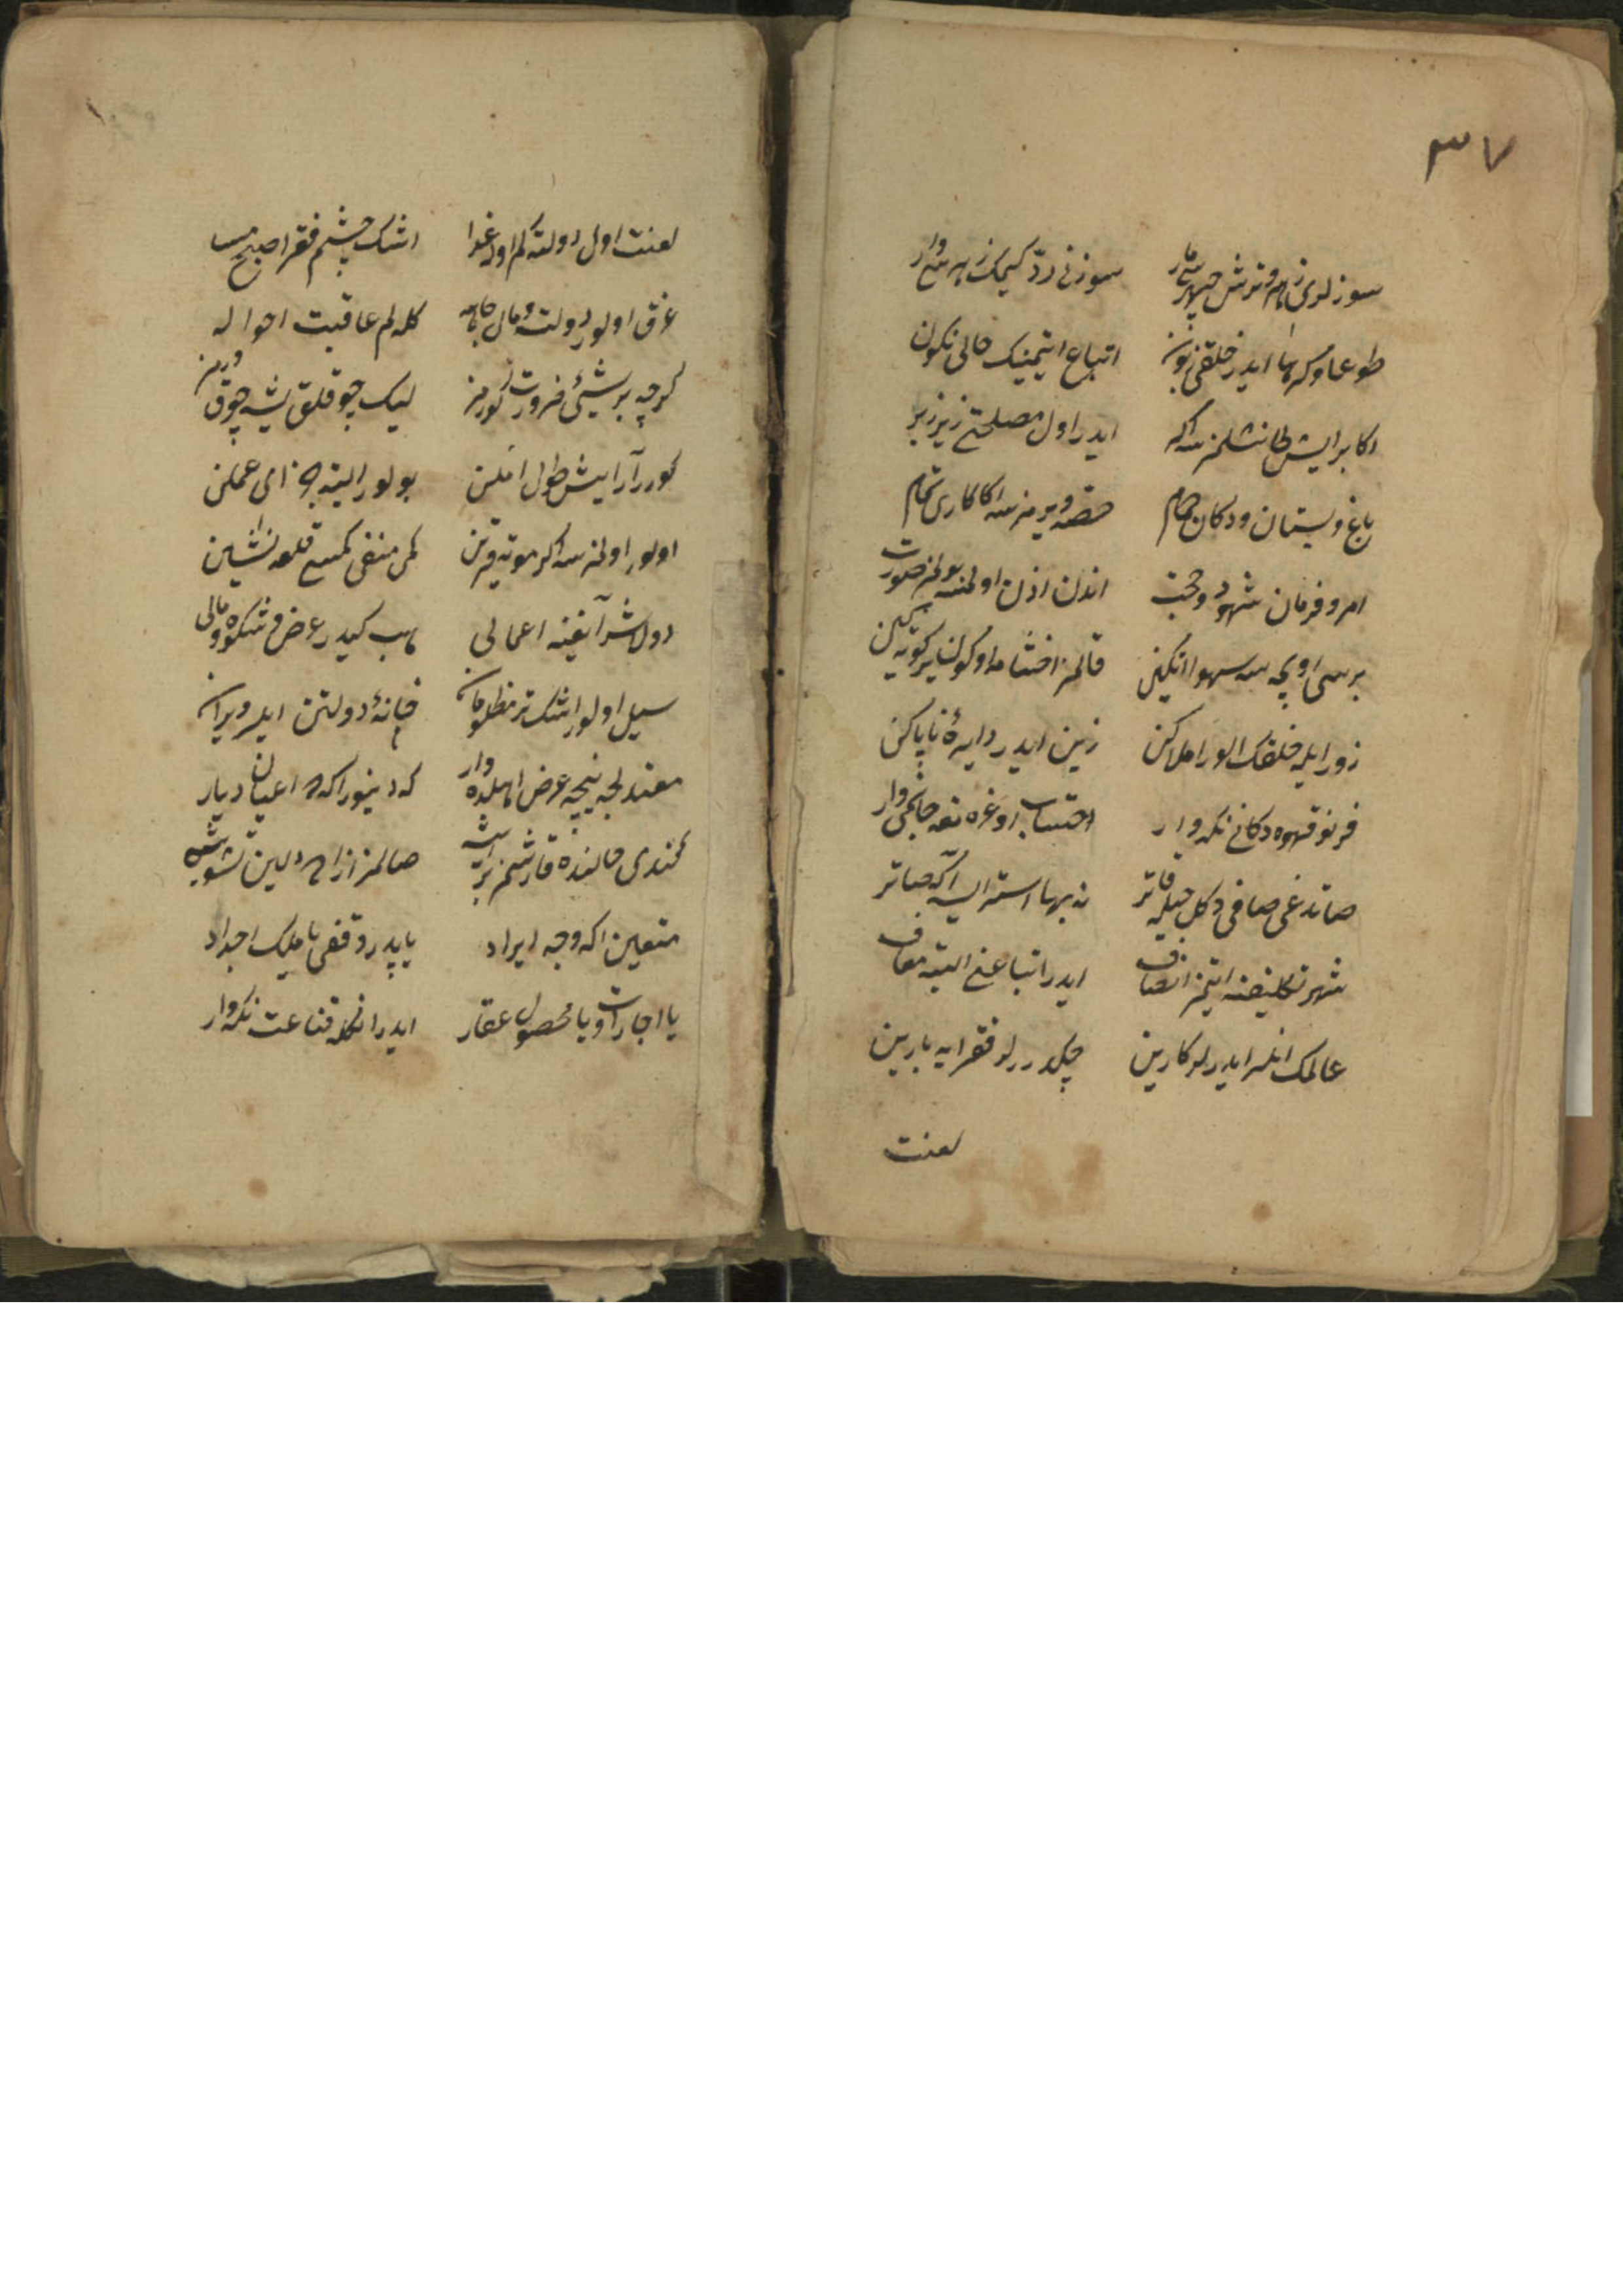 ٣٧
سوزلری زهر و ترش چهره‌سی مار سوزنی رد کیمک زهره‌سی وار
طوعا و كرها ایدر خلقی زبون اتباع ایتمینک حالی نکون
اکابر ایش طانشلمزسه اکر ایدر اول مصلحتی زیر زبر
باغ و بستان و دکان حمام حصه ویرمزسه اکا کاری تمام
امر و فرمان شهود و حجت اندن اذن اولمسه بولمز صورت
برسی اویمسه سهوا انکین قالمز اخشامه او کون سر کوته‌سین
زور ایله خلقک الور املاکن زین ایدر دایرهٔ ناپاکن
فرنو قهوه دکانی نکه وار احتساب اوغره نقه خانجی وار
صاتدغی صافی دکل حیله قاتر نه بها استر ایسه اکه صاتر
شهر تکلیفنه ایتمز انصاف ایدر اتباعنی البته معاف
عالمک انلر ایدرلر کارین چکدررلر فقرایه بارین
لعنت
لعنت اول دولته کم اوله غدا اشک چشم فقرا صبح مسا
غرق اولور دولت و مال جاهه کله لم عاقبت احواله
کرچه بر شیئی ضرورت کورمز لیک چوقلق یشه چوق دورمز
کورر آرایش طول املن بولور البته جزای عملن
اولور اولمزسه اکر موته قرین کمی منفی کمیسی قلعه نشین
دولاشر آیغینه اعمالی هب کیدر عرض و شکوه و مالی
سیل اولور اشک تر مظلومان خانهٔ دولتن ایلر ویران
مقتدلجه نیجه عرض اهلده وار که دینور اکه ده اعیان دیار
کندی حالنده قارشمز بر ایشه صالمز ازاده دلین تشویشه
متعین اکه وجه ایراد یا پدر وقفی یا ملک اجداد
یا اجارات و یا محصول عقار ایدر انکله قناعت نکه وار